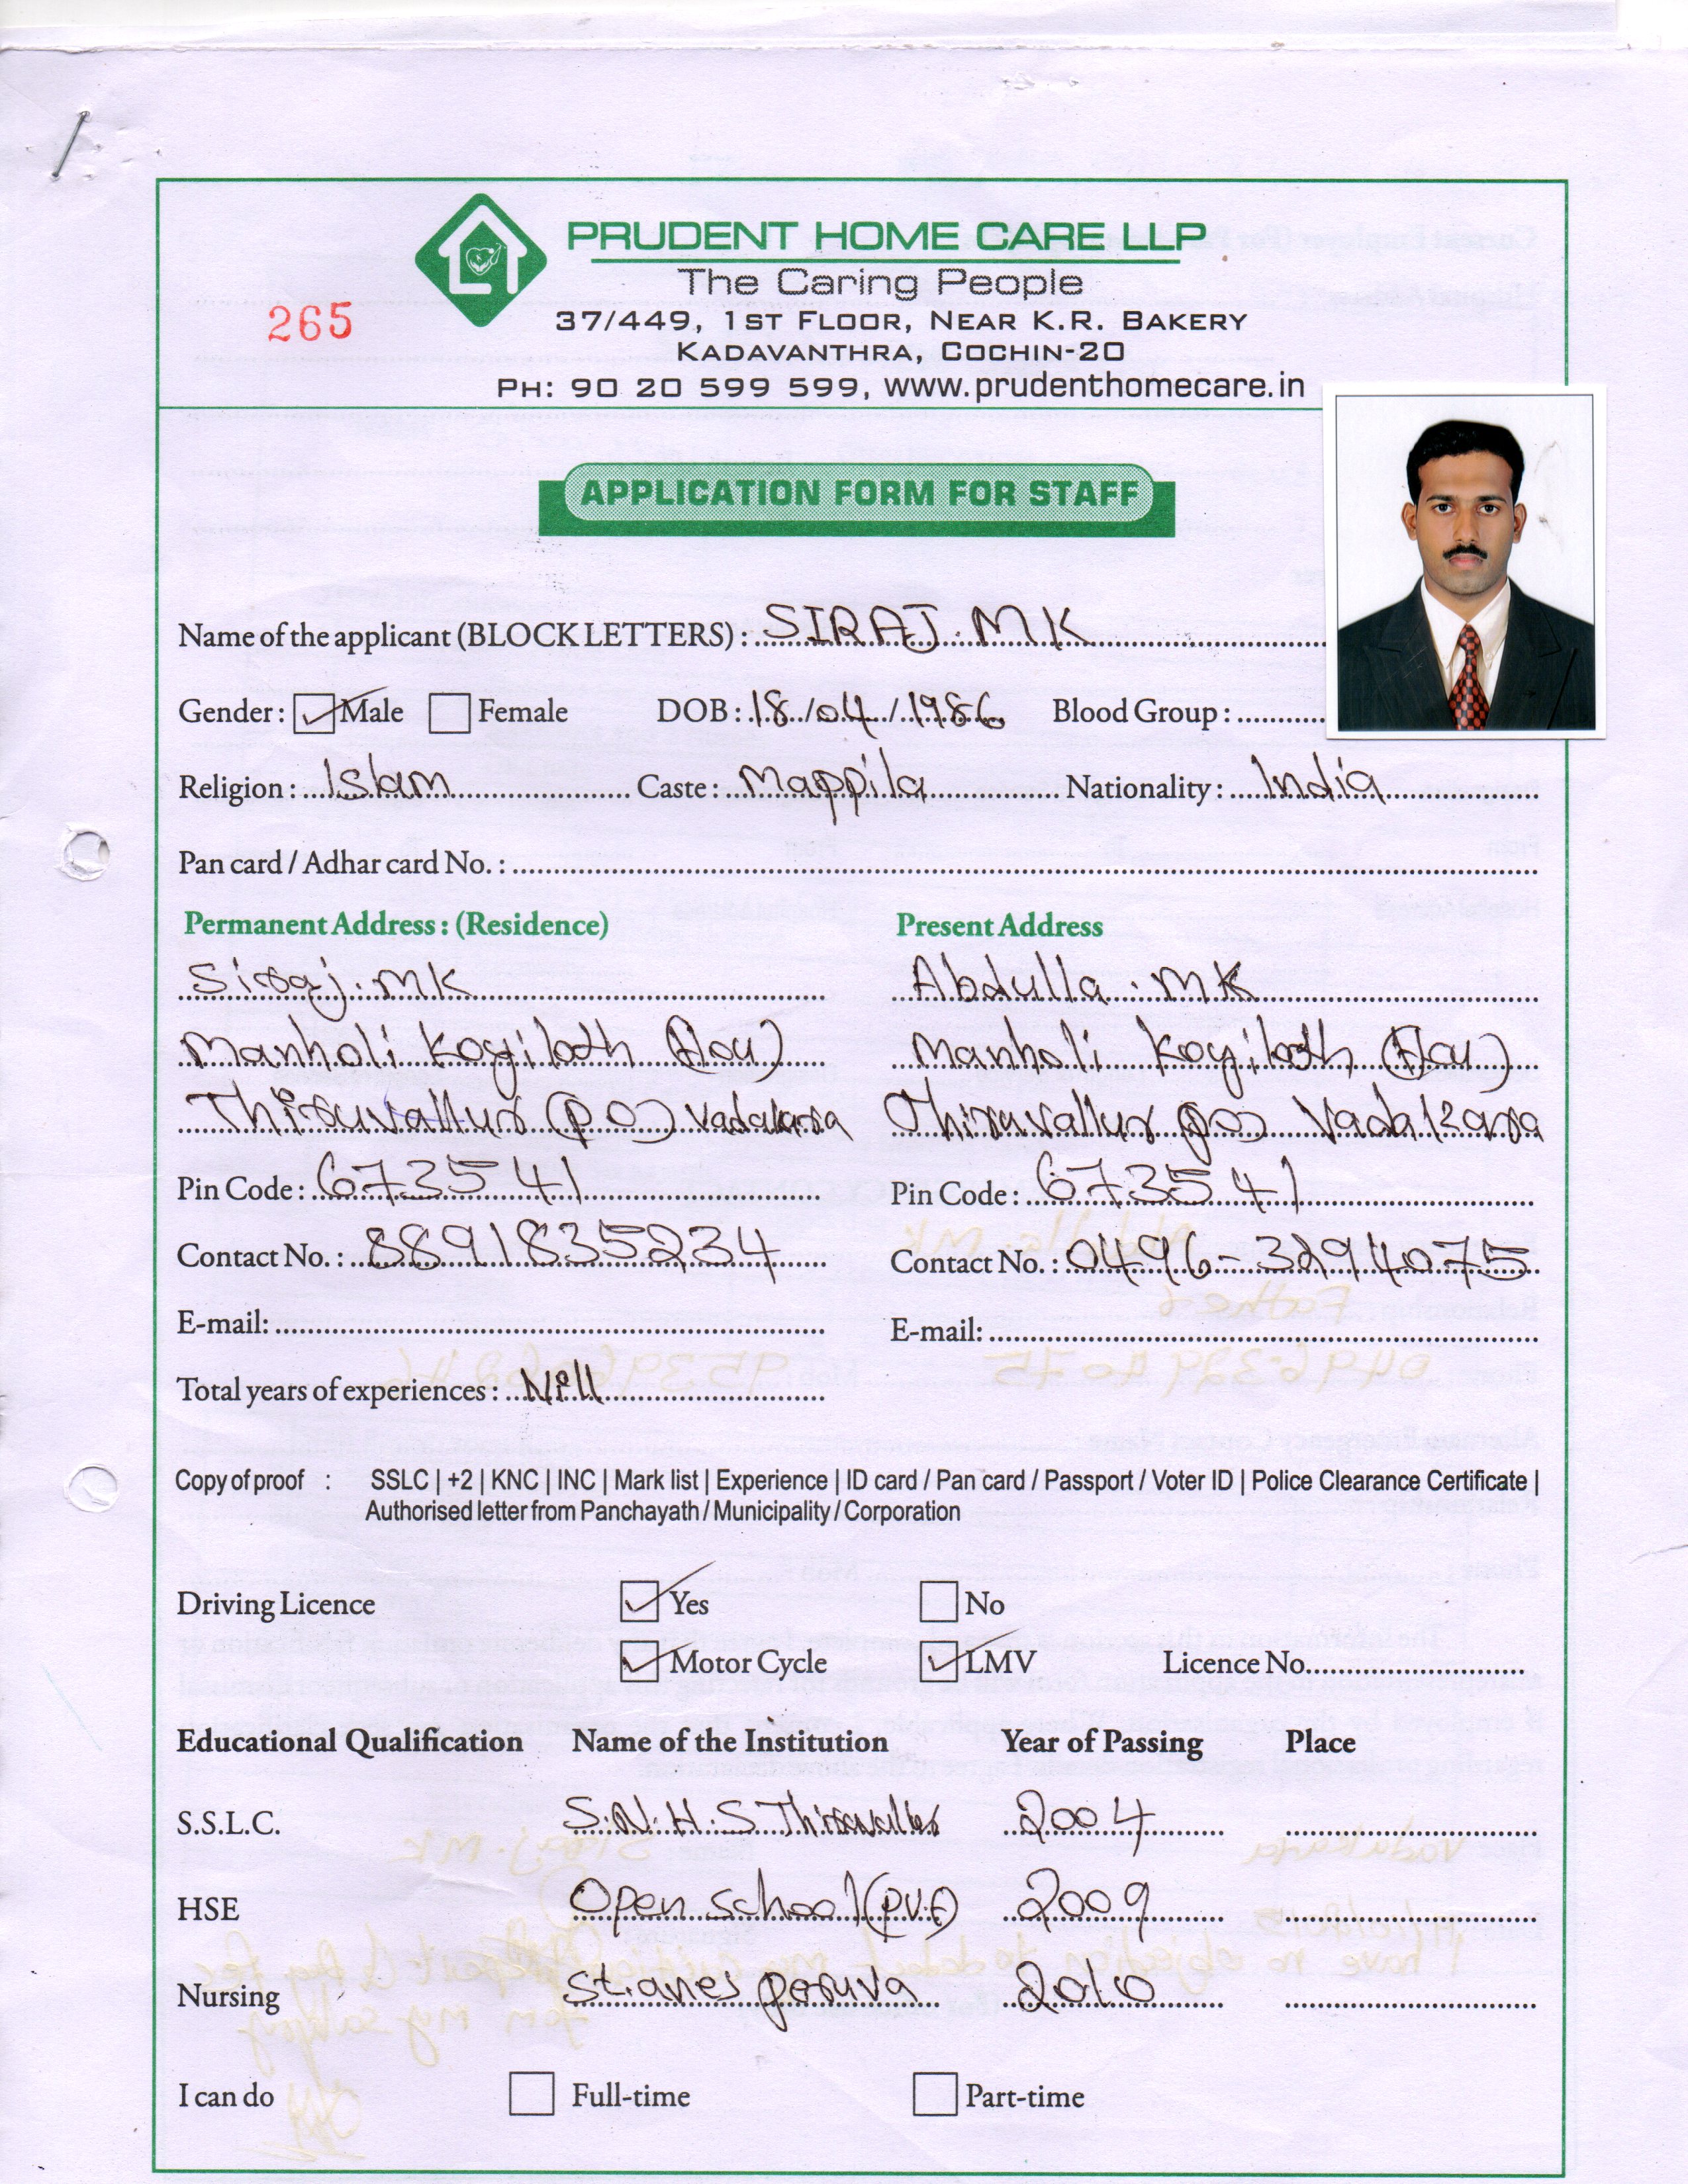 PRUDENT HOME CARE LLP
The Caring People
265
37/449, 1ST FLOOR, NEAR K.R. BAKERY
KADAVANTHRA, COCHIN-20
PH: 90 20 599 599, www.prudenthomecare.in
APPLICATION FORM FOR STAFF
Name of the applicant (BLOCK LETTERS) : SIRAJ. M K
Gender : Male Female DOB : 18/04/1986 Blood Group :
Religion : Islam Caste : Mappila Nationality : India
Pan card / Adhar card No. :
Permanent Address : (Residence)
Siraj. MK
Manholi Koyiloth (Hou)
Thiruvallur (PO) Vadakara
Pin Code : 673541
Contact No. : 8891835234
E-mail:
Total years of experiences : Nill
Present Address
Abdulla . MK
Manholi Koyiloth (Hou)
Thiruvallur (PO) Vadakara
Pin Code : 673541
Contact No. : 0496-3294075
E-mail:
Copy of proof : SSLC | +2 | KNC | INC | Mark list | Experience | ID card / Pan card / Passport / Voter ID | Police Clearance Certificate |
Authorised letter from Panchayath / Municipality / Corporation
Driving Licence Yes No
Motor Cycle LMV Licence No.
Educational Qualification Name of the Institution Year of Passing Place
S.S.L.C. S.N.H.S Thiruvallur 2004
HSE Open school (pvt) 2009
Nursing St. anes 2010
I can do Full-time Part-time